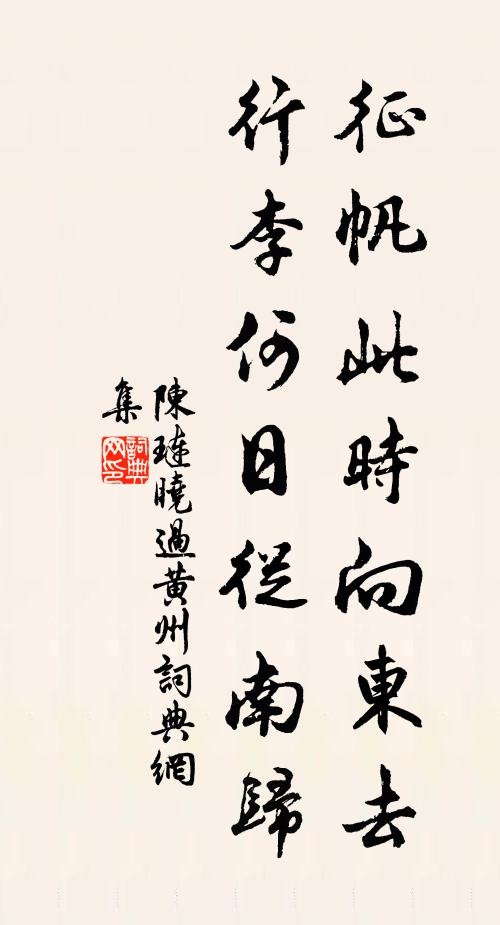 征帆此時向東去
行李何日從南歸
陳璉曉過黃州詞典網
集
詞典
网印